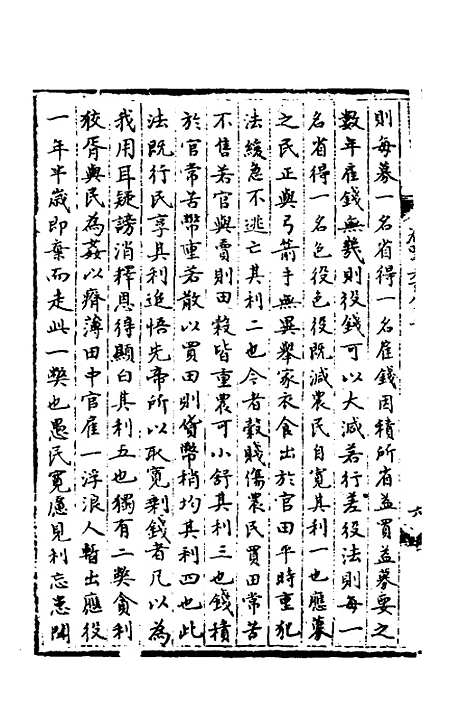 則每募一名省得一名雇錢因積所省益買益募要之
數年雇錢無幾則役錢可以大減若行差役法則每一
名省得一名色役色役既減農民自寬其利一也應募
之民正與弓箭手無異舉家衣食出於官田平時重犯
法緩急不逃亡其利二也今者穀賤傷農民買田常苦
不售若官與賣則田穀皆重農可小舒其利三也錢積
於官常苦幣重若散以買田則貨幣稍均其利四也此
法既行民享其利追悟先帝所以取寬剩錢者凡以為
我用耳疑謗消釋恩得顯白其利五也獨有二獘貪利
狡胥與民為姦以瘠薄田中官雇一浮浪人暫出應役
一年半歲即棄而走此一獘也愚民寡慮見利忘患聞